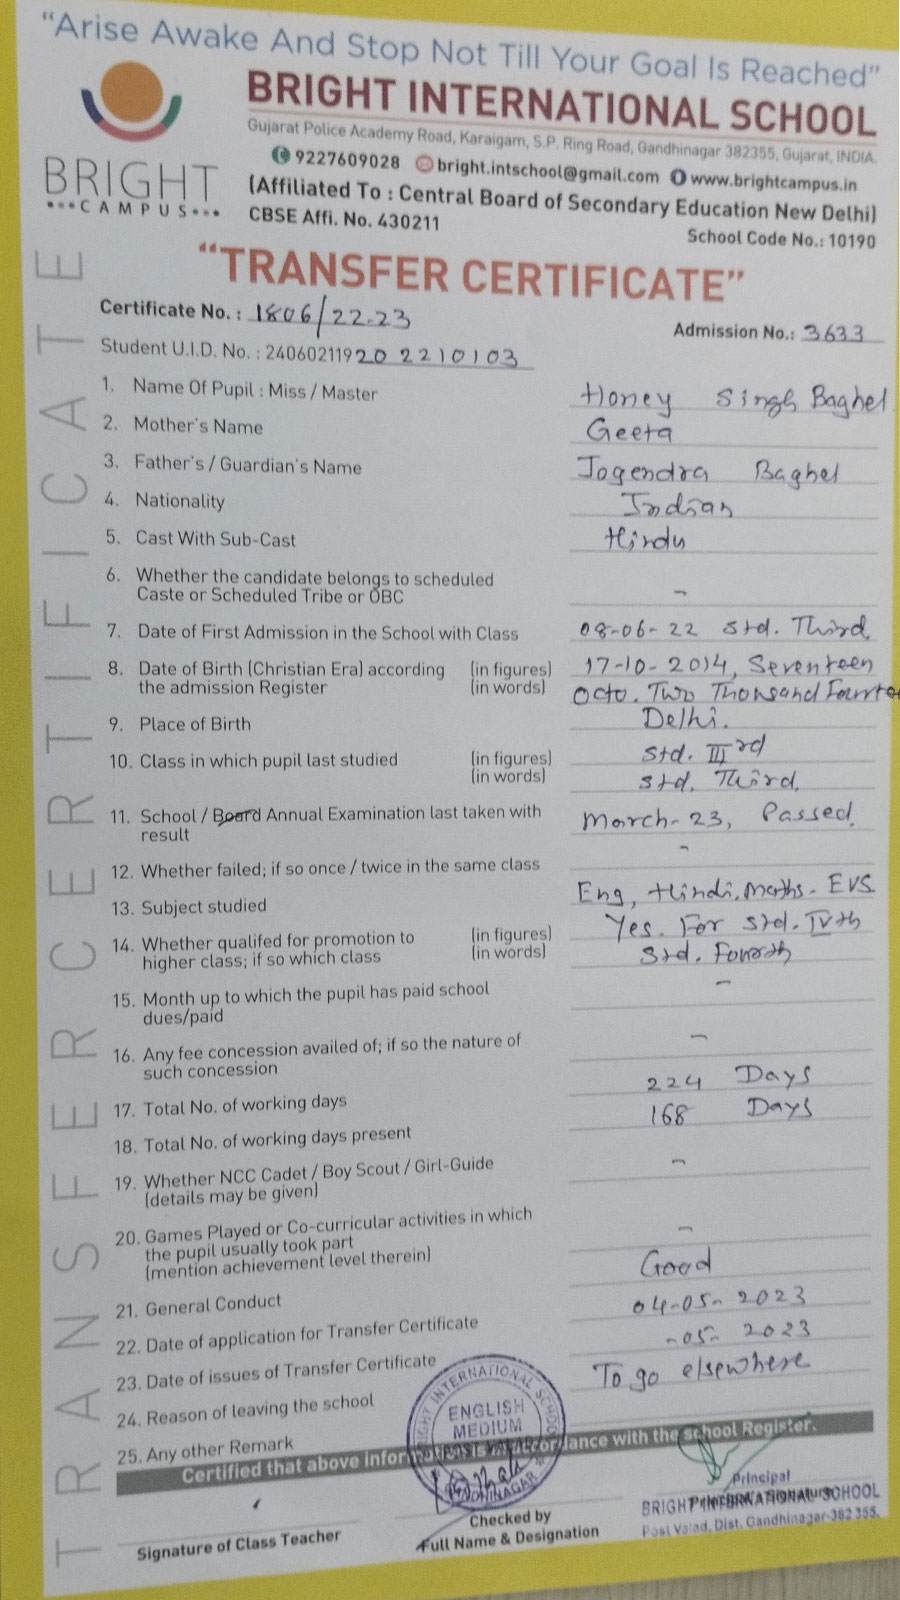 “Arise Awake And Stop Not Till Your Goal Is Reached”
BRIGHT
•••CAMPUS•••
BRIGHT INTERNATIONAL SCHOOL
Gujarat Police Academy Road, Karaigam, S.P. Ring Road, Gandhinagar 382355, Gujarat, INDIA.
9227609028 bright.intschool@gmail.com www.brightcampus.in
(Affiliated To : Central Board of Secondary Education New Delhi)
CBSE Affi. No. 430211 School Code No.: 10190
TRANSFER CERTIFICATE
“TRANSFER CERTIFICATE”
Certificate No. : 1806/22-23 Admission No.: 3633
Student U.I.D. No. : 24060211920 2210103
1. Name Of Pupil : Miss / Master Honey Singh Baghel
2. Mother's Name Geeta
3. Father's / Guardian's Name Jogendra Baghel
4. Nationality Indian
5. Cast With Sub-Cast Hindu
6. Whether the candidate belongs to scheduled
Caste or Scheduled Tribe or OBC -
7. Date of First Admission in the School with Class 08-06-22 Std. Third.
8. Date of Birth (Christian Era) according (in figures) 17-10-2014, Seventeen
the admission Register (in words) Octo. Two Thousand
9. Place of Birth Delhi.
10. Class in which pupil last studied (in figures) Std. IIIrd
(in words) Std. Third.
11. School / Board Annual Examination last taken with March-23, Passed.
result
12. Whether failed; if so once / twice in the same class -
13. Subject studied Eng, Hindi, Maths. EVS
14. Whether qualifed for promotion to (in figures) Yes. For Std. IVth
higher class; if so which class (in words) Std. Fourth
15. Month up to which the pupil has paid school -
dues/paid
16. Any fee concession availed of; if so the nature of -
such concession
17. Total No. of working days 224 Days
18. Total No. of working days present 168 Days
19. Whether NCC Cadet / Boy Scout / Girl-Guide -
(details may be given)
20. Games Played or Co-curricular activities in which
the pupil usually took part -
(mention achievement level therein)
21. General Conduct Good
22. Date of application for Transfer Certificate 04-05-2023
23. Date of issues of Transfer Certificate -05-2023
24. Reason of leaving the school To go elsewhere
25. Any other Remark
BRIGHT INTERNATIONAL SCHOOL
ENGLISH
MEDIUM
Certified that above accordance with the school Register.
Principal
BRIGHT INTERNATIONAL SCHOOL
Post Valad, Dist. Gandhinagar-382 355.
Signature of Class Teacher
Checked by
Full Name & Designation